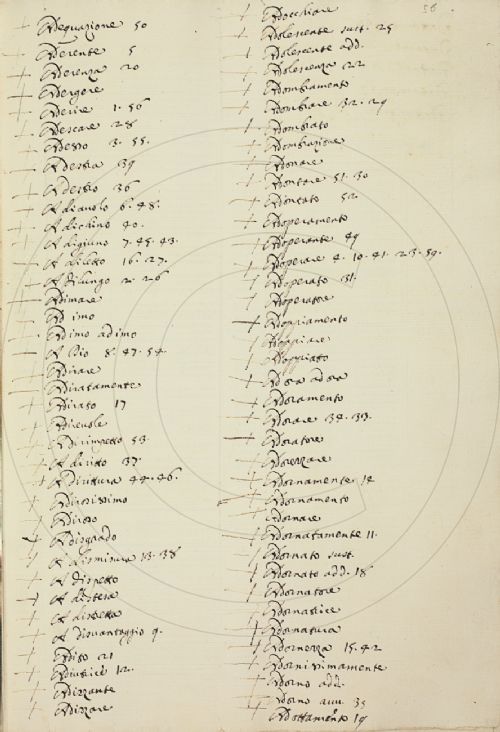 Adequazione 50
Aderente 5
Aderenza 20
Adergere
Aderire 1. 56
Adescare 28
Adesso 3. 55.
Adestra 39
Adesso 36
A diavolo 6. 48.
A dichino 40.
A digiuno 7. 45. 43.
A diletto 16. 27.
A dilungo 2. 26
Adimare
Ad imo
Ad imo ad imo
A Dio 8. 47. 54.
Adirare
Adiratamente
Adirato 17
Adirevole
A dirimpetto 53.
A diritto 37.
A dirittura 44. 46.
Adirosissimo
Adiroso
A disgrado
A dismisura 13. 38
A dispetto
A distesa
A disdetta
A disvantaggio 9.
Adito 21
Adizzante
Adizzare
56
Adocchiare
Adolescente sust. 25
Adolescente add.
Adolescenza 22
Adombramento
Adombrare 32. 29
Adombrato
Adombrazione
Adonare
Adontare 51. 30
Adontato 52.
Adoperamento
Adoperante 49
Adoperare 4. 10. 41. 23. 59.
Adoperato 31.
Adoperatore
Adoppiamento
Adoppiare
Adoppiato
Ad ora ad ora
Adoramento
Adorare 34. 33.
Adoratore
Adorezzare
Adornamente 14
Adornamento
Adornare
Adornatamente 11.
Adornato sust.
Adornato add. 18
Adornatore
Adornatrice
Adornatura
Adornezza 15. 42
Adornissimamente
Adorno add.
Adorno avv. 35
Adottamento 19